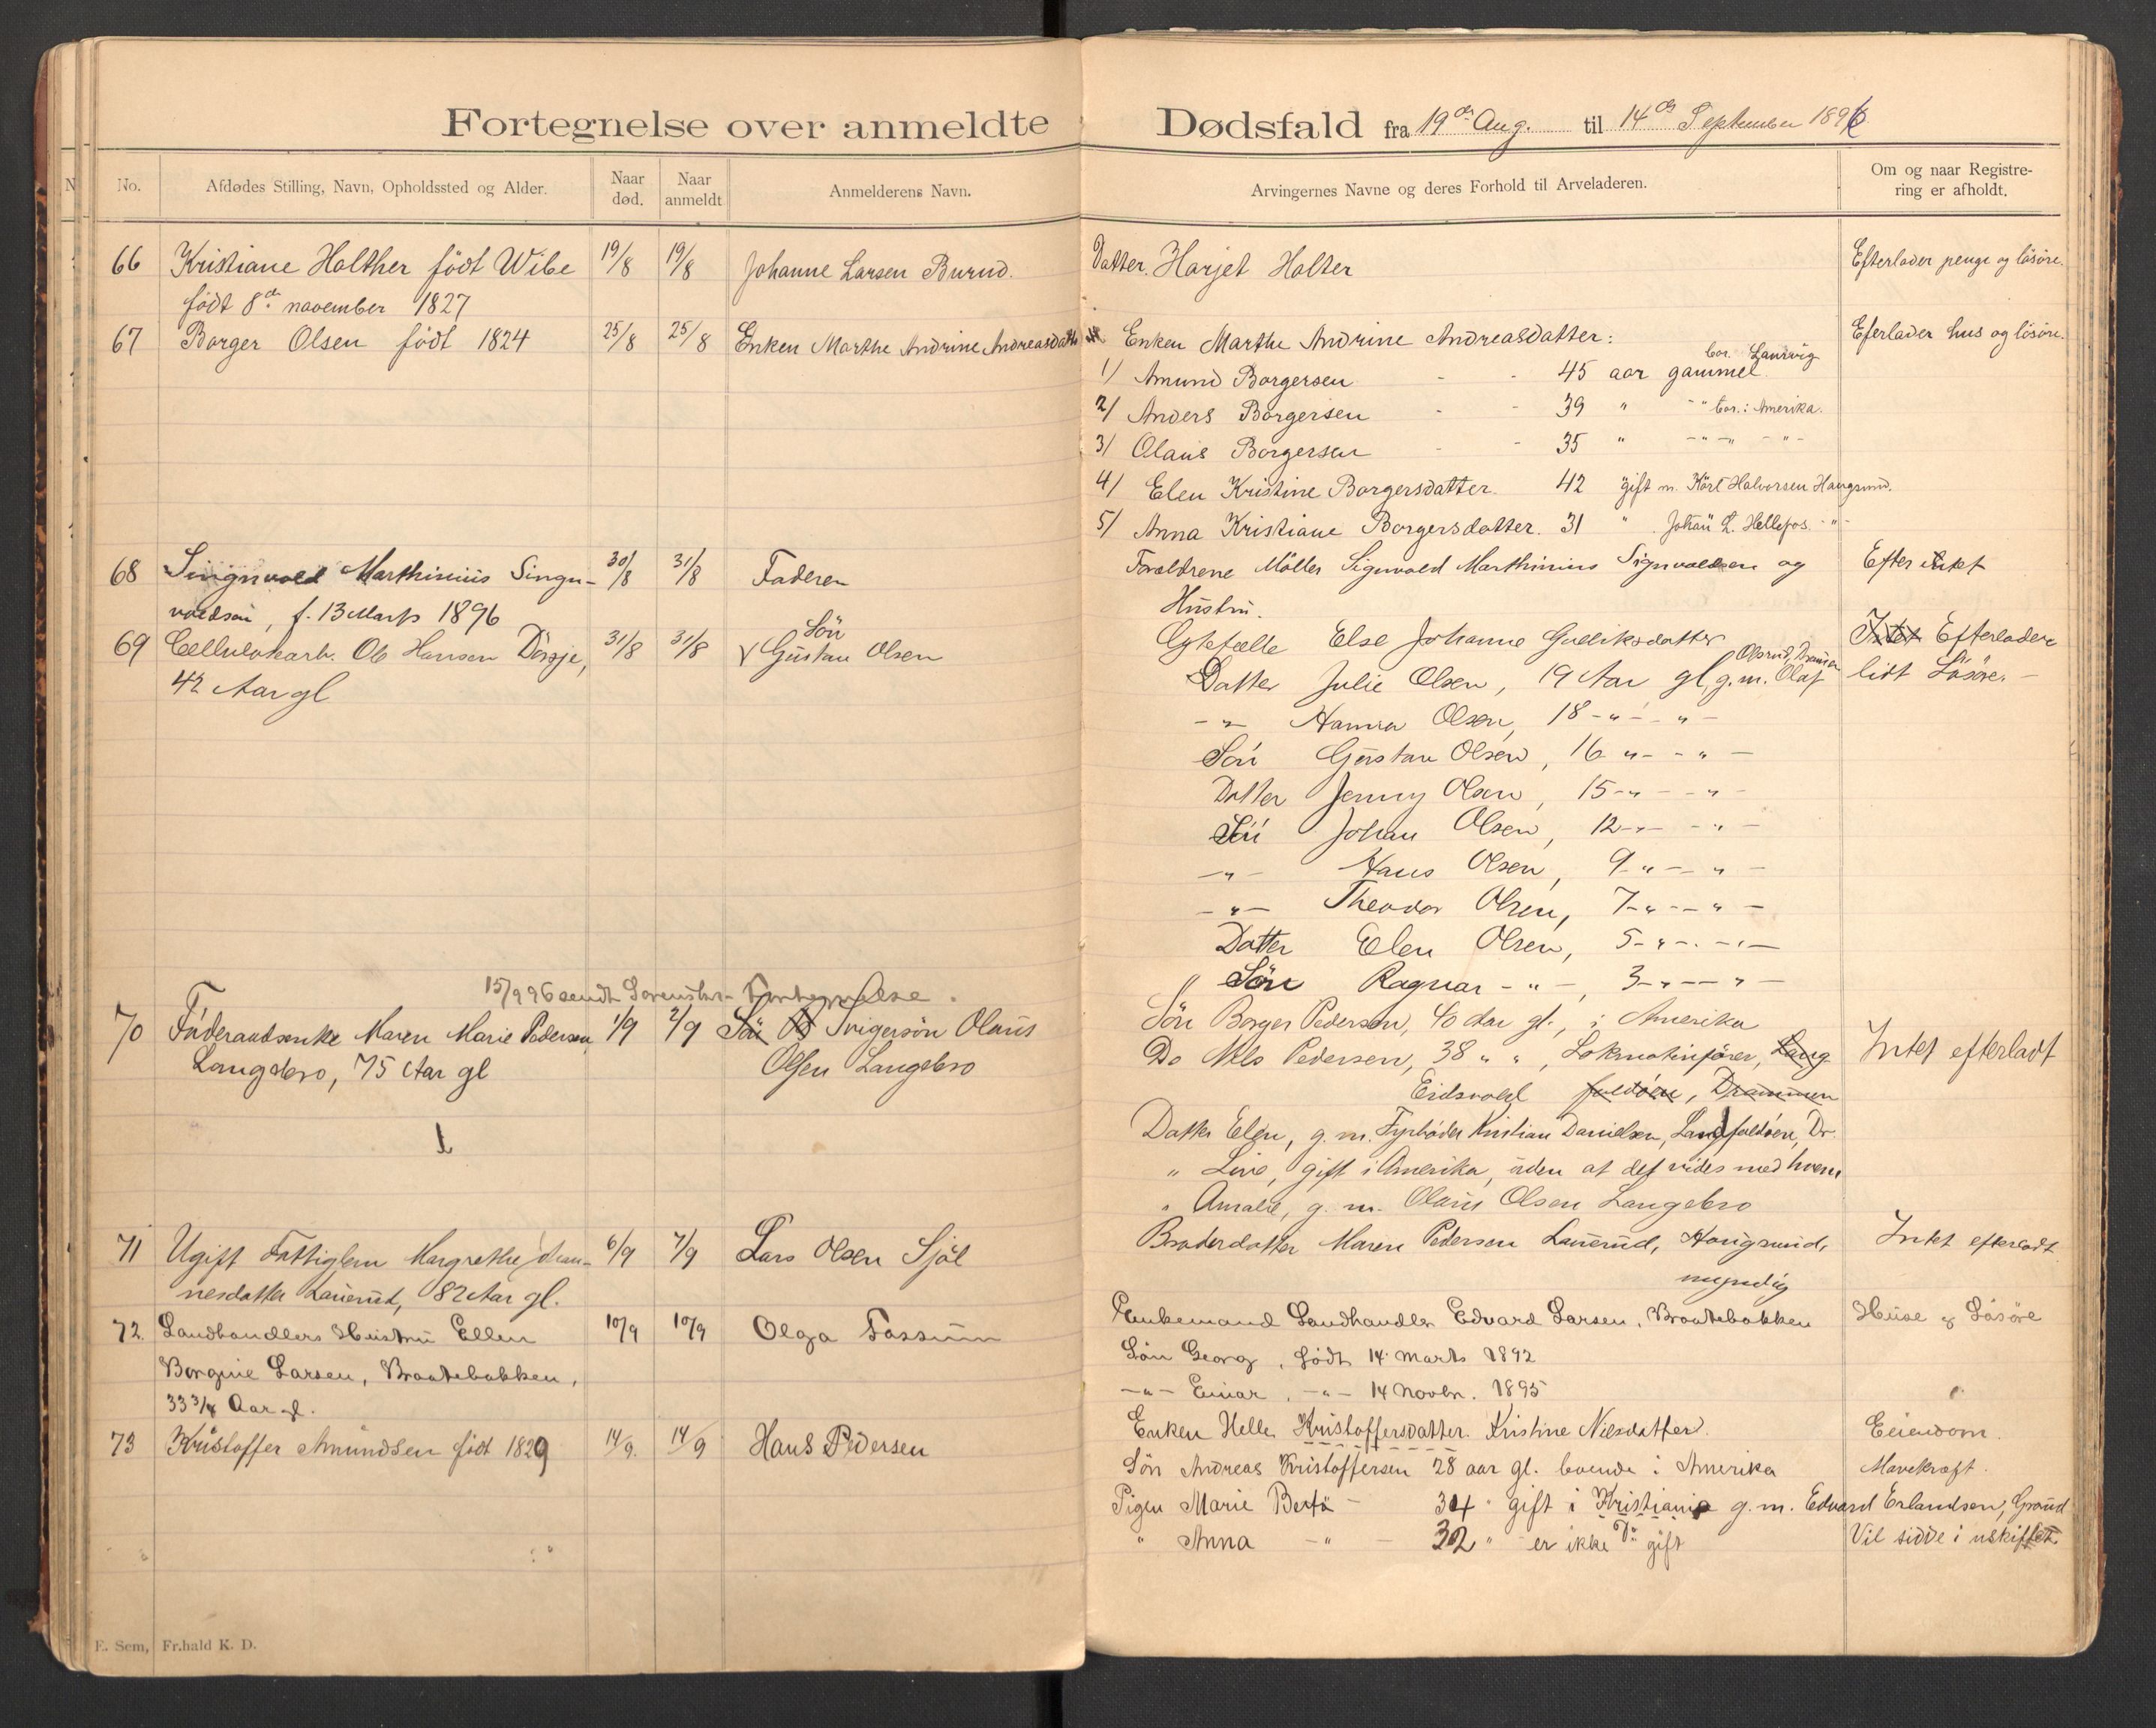 Fortegnelse over anmeldte Dødsfald fra 19de Aug. til 14de September 1896
No.
Afdødes Stilling, Navn, Opholdssted og Alder.
Naar død.
Naar anmeldt
Anmelderens Navn.
Arvingernes Navne og deres Forhold til Arveladeren.
Om og naar Registrering er afholdt.
66 Kristiane Holther födt Wibe 19/8 19/8 Johanne Larsen Burud. Datter. Harjet Holter Efterlader penge og lösöre.
födt 8de november 1827
67 Borger Olsen födt 1824 25/8 25/8 Enken Marthe Andrine Andreasdatter Enken Marthe Andrine Andreasdatter: Eferlader hus og lösöre.
1/ Amund Borgersen 45 aar gammel bor. Laurvig
2/ Anders Borgersen 39 " " bor.: Amerika.
3/ Olaus Borgersen 35 " - " - " - " -
4/ Elen Kristine Borgersdatter. 42 gift m. Kárl Halvorsen Haugsund.
5/ Anna Kristiane Borgersdatter. 31 " Johan L. Hellefos. - " -
68 Singnvald Marthinius Singn- 30/8 31/8 Faderen Foreldrene Möller Signvald Marthinius Signvaldsen og Efter intet
valdsen, f. 13 Marts 1896 Hustru.
69 Cellulokarb. Ole Hansen Dörje, 31/8 31/8 Sön Gustav Olsen Egtefælle Else Johanne Gulliksdatter Intet Efterlader
42 Aar gl Datter Julie Olsen, 19 Aar gl, g. m. Olaf Olsrud, Drammen lidt Lösöre. -
- " - Hanna Olsen, 18 - " - " -
Sön Gustav Olsen, 16 " - - " -
Datter Jenny Olsen, 15 - " - - " -
Sön Johan Olsen, 12 - " - - " -
- " - Hans Olsen, 9 - " - " -
- " - Theodor Olsen, 7 - " - - " -
Datter Elen Olsen, 5 - " - - " -
" Sön Ragnar - " -, 3 - " - - " -
15/9 96 sendt Fortegnelse.
70 Föderaadsenke Maren Marie Pedersen 1/9 2/9 Sön Svigersön Olaus Sön Borger Pedersen, 40 Aar gl., i Amerika Intet efterladt
Langebro, 75 Aar gl Olsen Langebro Do Nils Pedersen, 38 " ", Lokmotivförer, Lang
Eidsvold föeldöen, Drammen
Datter Elen, g. m. Fyrböder Kristian Danielsen, Landfaldöen, Dr.
" Live, gift i Amerika, uden at det vides med hvem
" Amalie, g. m. Olaus Olsen Langebro
71 Ugift Fattiglem Margrethe Johan- 6/9 7/9 Lars Olsen Sjöl Broderdatter Maren Pedersen Lauerud, Hougsund, Intet efterladt
nesdatter Lauerud, 82 Aar gl. myndig
72. Landhandlers Hustru Ellen 10/9 10/9 Olga Fossum Enkemand Landhandler Edvard Larsen, Braatebakken Huse og Lösöre
Borgine Larsen, Braatebakken, Sön Georg, födt 14 Marts 1892
33 3/4 Aar gl. - " - Einar, - " - 14 Novbr. 1895
73 Kristoffer Amundsen födt 1829 14/9. 14/9 Hans Pedersen Enken Helle Kristoffersdatter. Kristine Nilsdatter. Eiendom.
Sön Andreas Kristoffersen 28 aar gl. boende i Amerika Mavekræft.
Pigen Marie Berta - 34 " gift i Kristiania g. m. Edvard Erlandsen, Grönd
" Anna - " - 32 " er ikke gift Vil sidde i uskiftet.
E. Sem, Fr.hald K. D.